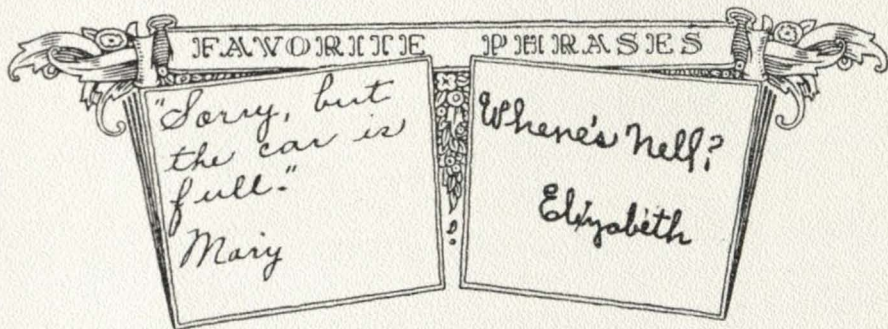 FAVORITE PHRASES
"Sorry, but
the car is
full."
Mary
Where's Nell?
Elizabeth